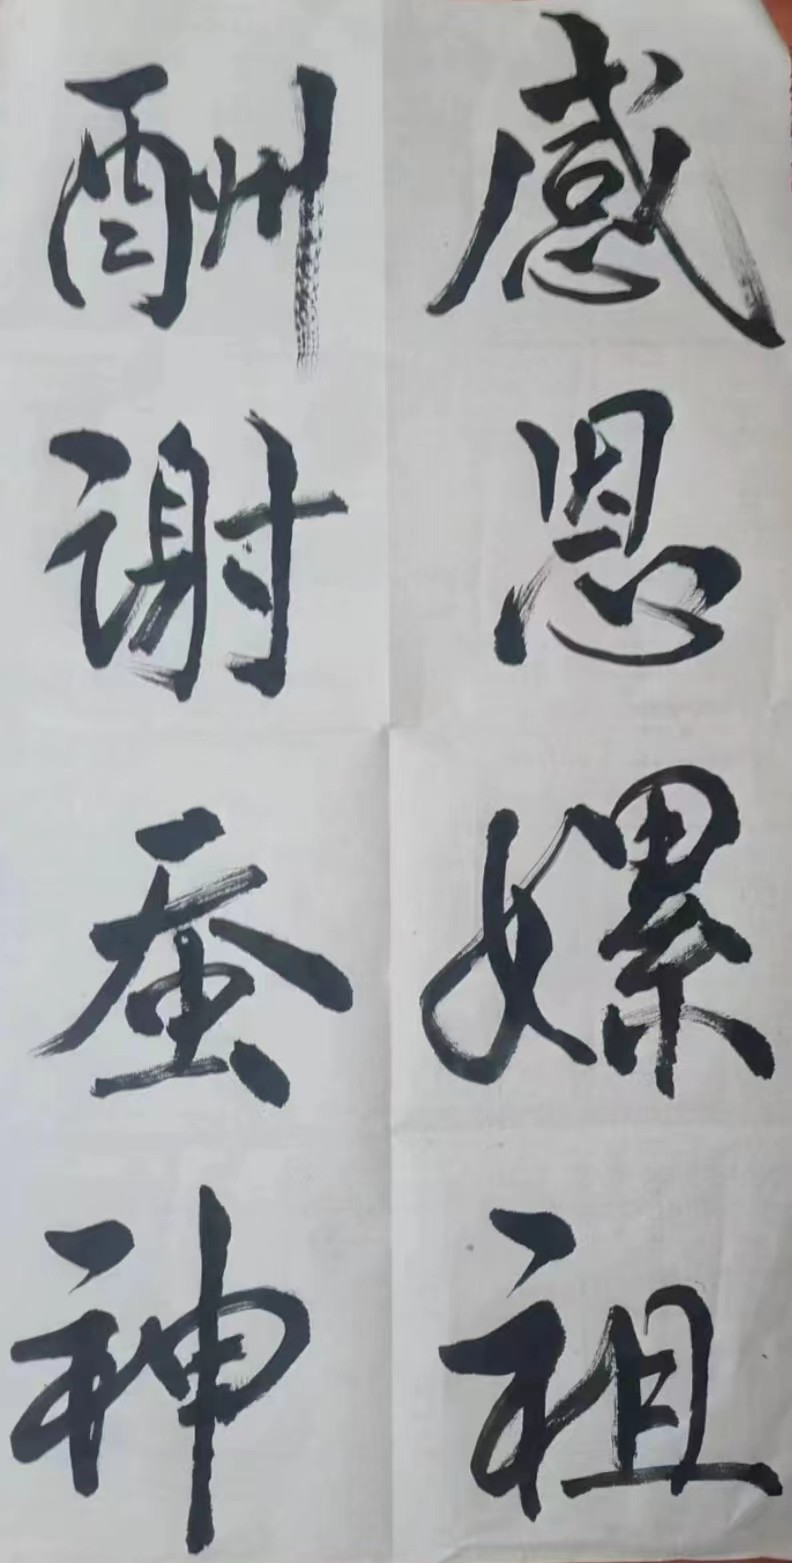 感恩嫘祖
酬谢蚕神